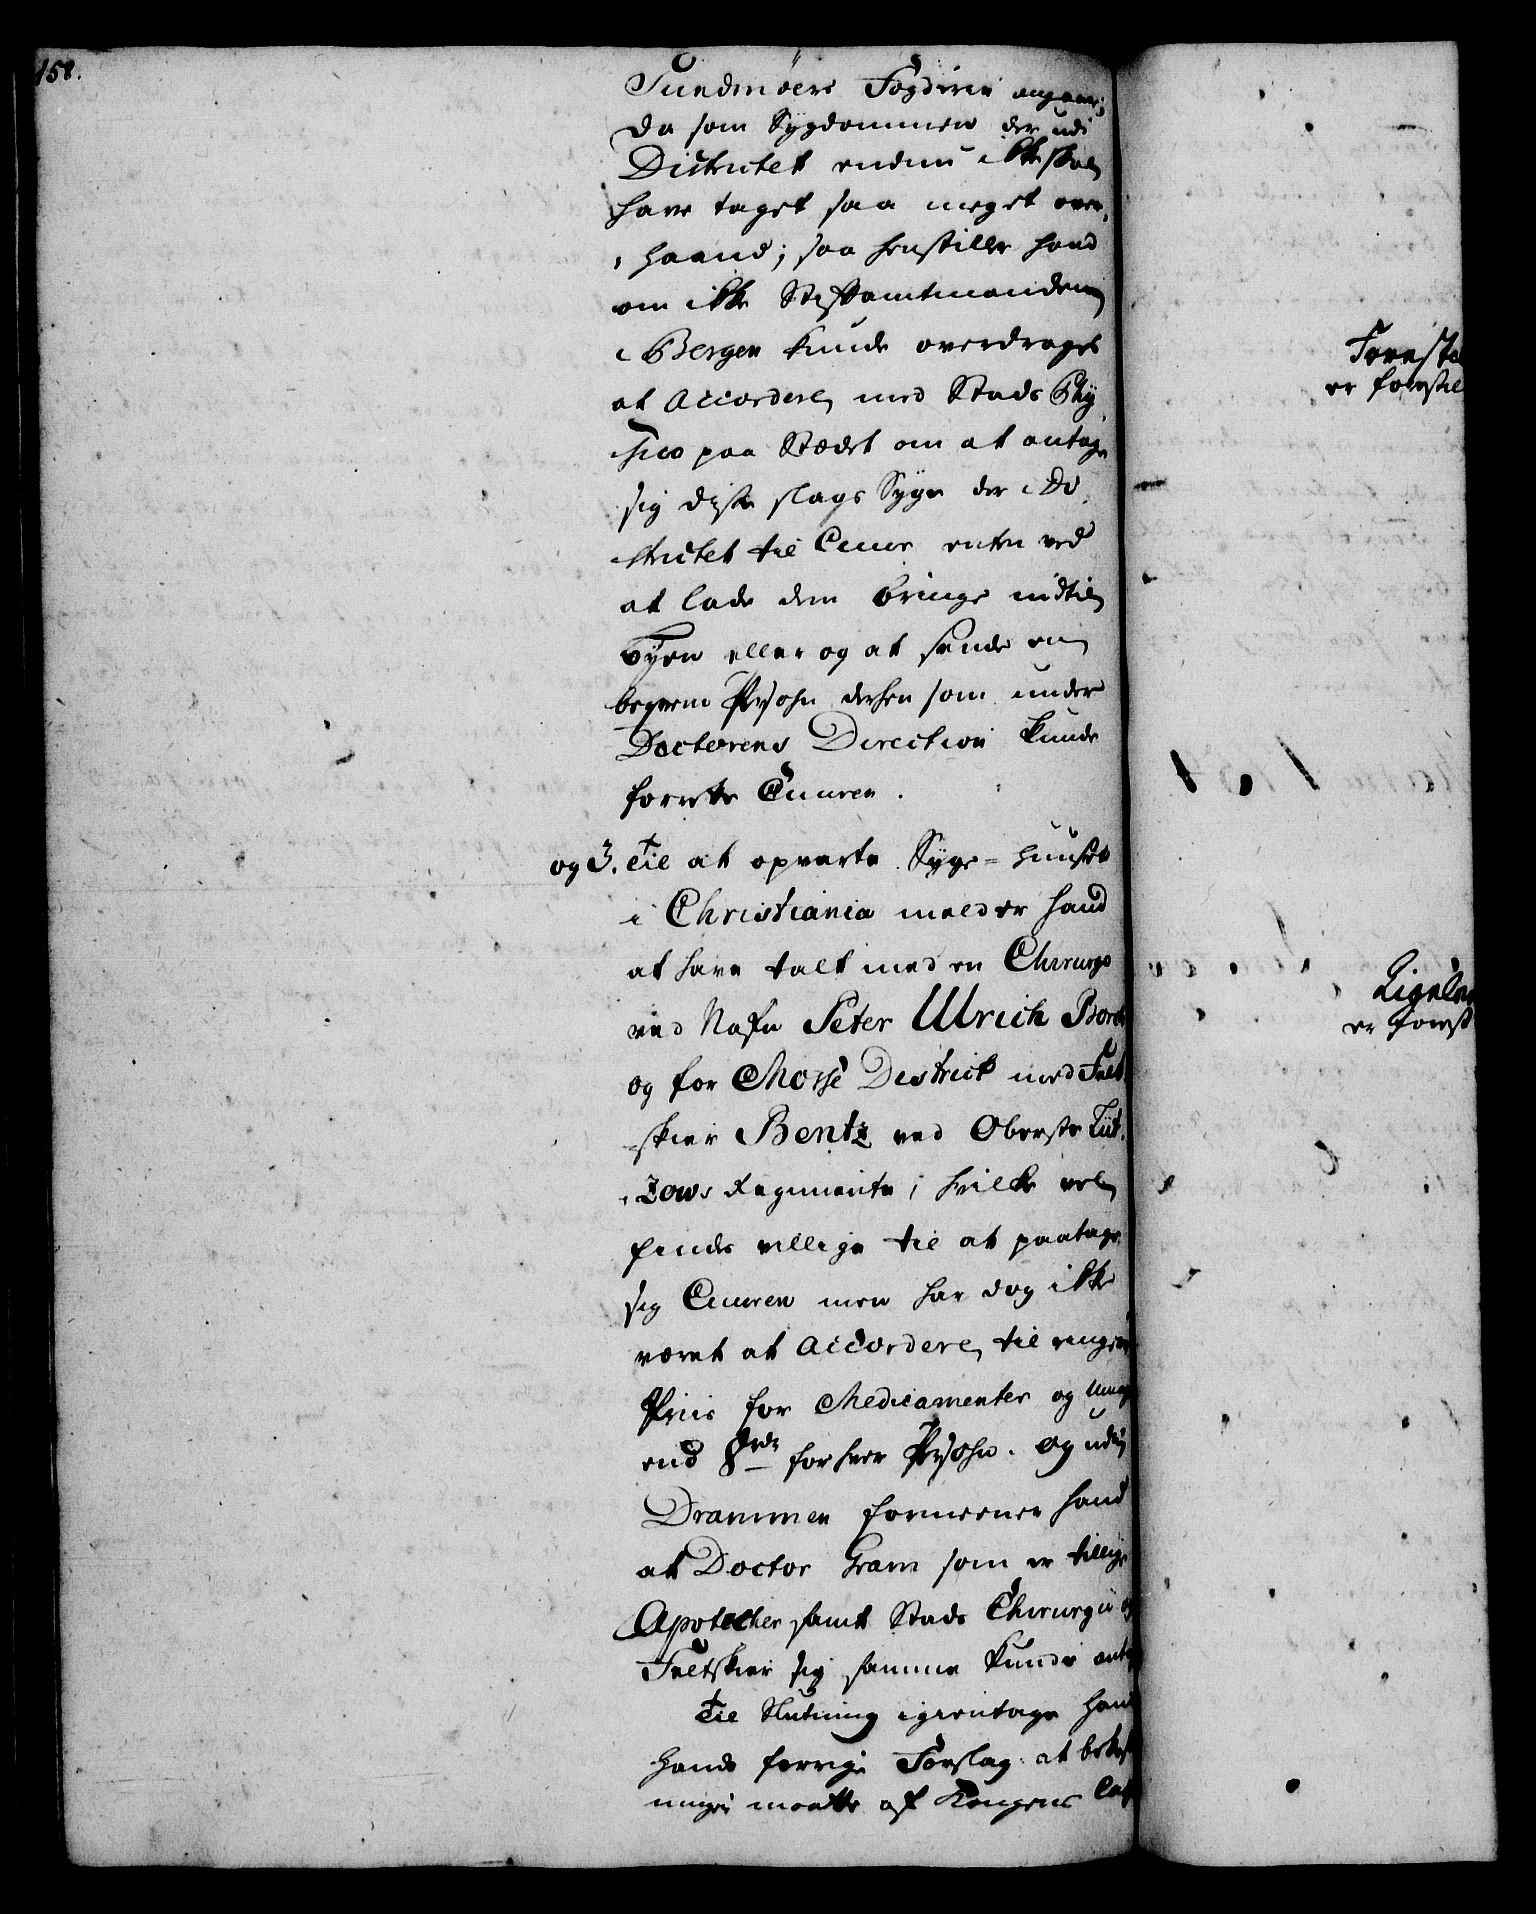 158.
Sundmöers Fogderie angaar;
da som Sygdommen der udi
Districtet endnu ikke skal
have taget saa meget over,
haand; saa henstiller hand
om ikke Stiftamtmanden
i Bergen kunde overdrages
at accordere med Stads Phy
sico paa Stædet om at antage
sig disse slags Syge der i Di
strictet til Cuur enten ved
at lade dem bringe indtil
Byen eller og at sende en
beqvem Persohn derhen som under
Doctorens Direction kunde
forrette Cuuren.
og 3. Til at opvarte Syge-Huuset
i Christiania melder hand
at have talt med en Chirurgo
ved Nafn Peter Ulrich
og for Mosse District med Felt
skier Bentz ved Oberste Lüt,
zows Regimente; hvilke vel
findes villige til at paatage
sig Cuuren men har dog ikke
været at accordere til ringere
Priis for Medicamenter og Umag
end 8 rdr for hver Persohn. Og udi
Drammen formeener hand
at Doctor Gram som er tillige
Apotecher samt Stads Chirurgi og
Feltskier sig samme kunde
Til Slutning igientager hand
hands forrige Forslag at
maatte af Kongens
er forstil
Ligele
er forst